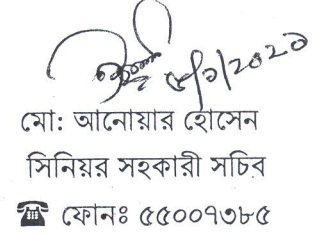 ৫/১/২০২১
মো: আনোয়ার হোসেন
সিনিয়র সহকারী সচিব
☎ ফোনঃ ৫৫০০৭৩৮৫